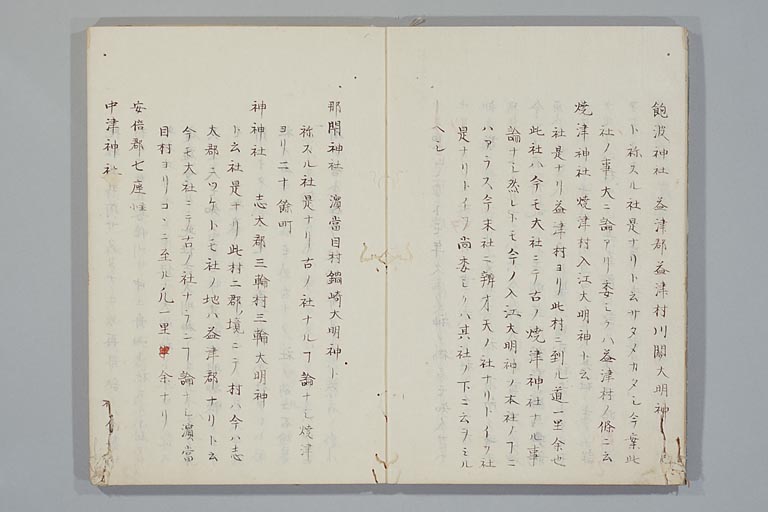 飽波神社 益津郡益津村川関大明神
ト称スル社是ナリト云サタメカタシ今案此
社ノ事大ニ論アリ委シクハ益津村ノ條ニ云
焼津神社 焼津村入江大明神ト云
社是ナリ益津村ヨリ此村ニ到ル道一里余也
此社ハ今モ大社ニテ古ノ焼津神社ナル事
論ナシ然レトモ今ノ入江大明神ノ本社ノ下ニ
ハアラス今末社ニ辨才天ノ社ナリトイフ社
是ナリトイヘリ尚委シクハ其社ノ下ニ云ヲミル
ヘシ
那閇神社 濱當目村鍜崎大明神ト
称スル社是ナリ古ノ社ナルヿ論ナシ焼津
ヨリ二十餘町
神神社 志太郡三輪村三輪大明神
ト云社是ナリ此村二郡ノ境ニテ村ハ今ハ志
太郡ニツケトモ社ノ地ハ益津郡ナリト云
今モ大社ニテ古ノ社ナラフヿ論ナシ濱當
目村ヨリコヽニ至ル凡一里余ナリ
安倍郡七座
中津神社